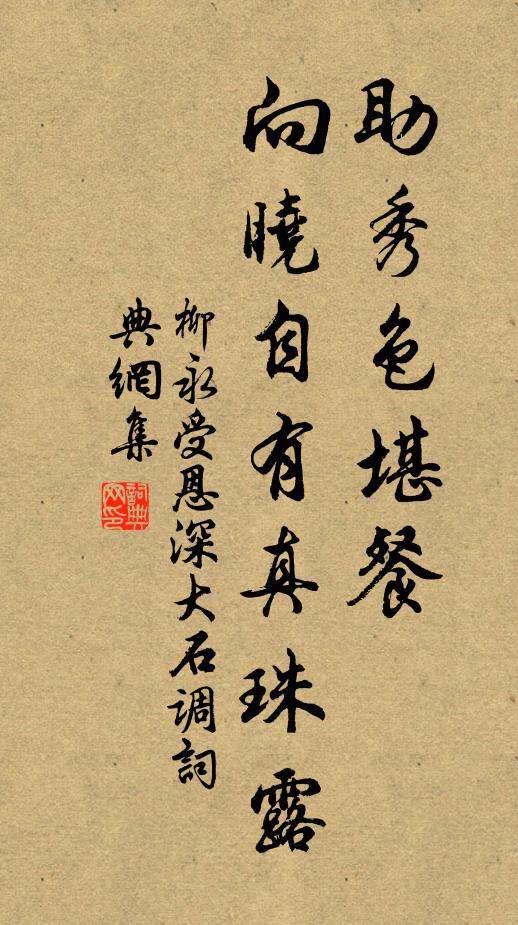 助秀色堪餐
向曉自有真珠露
柳永受恩深大石調詞
典網集
詞典網印